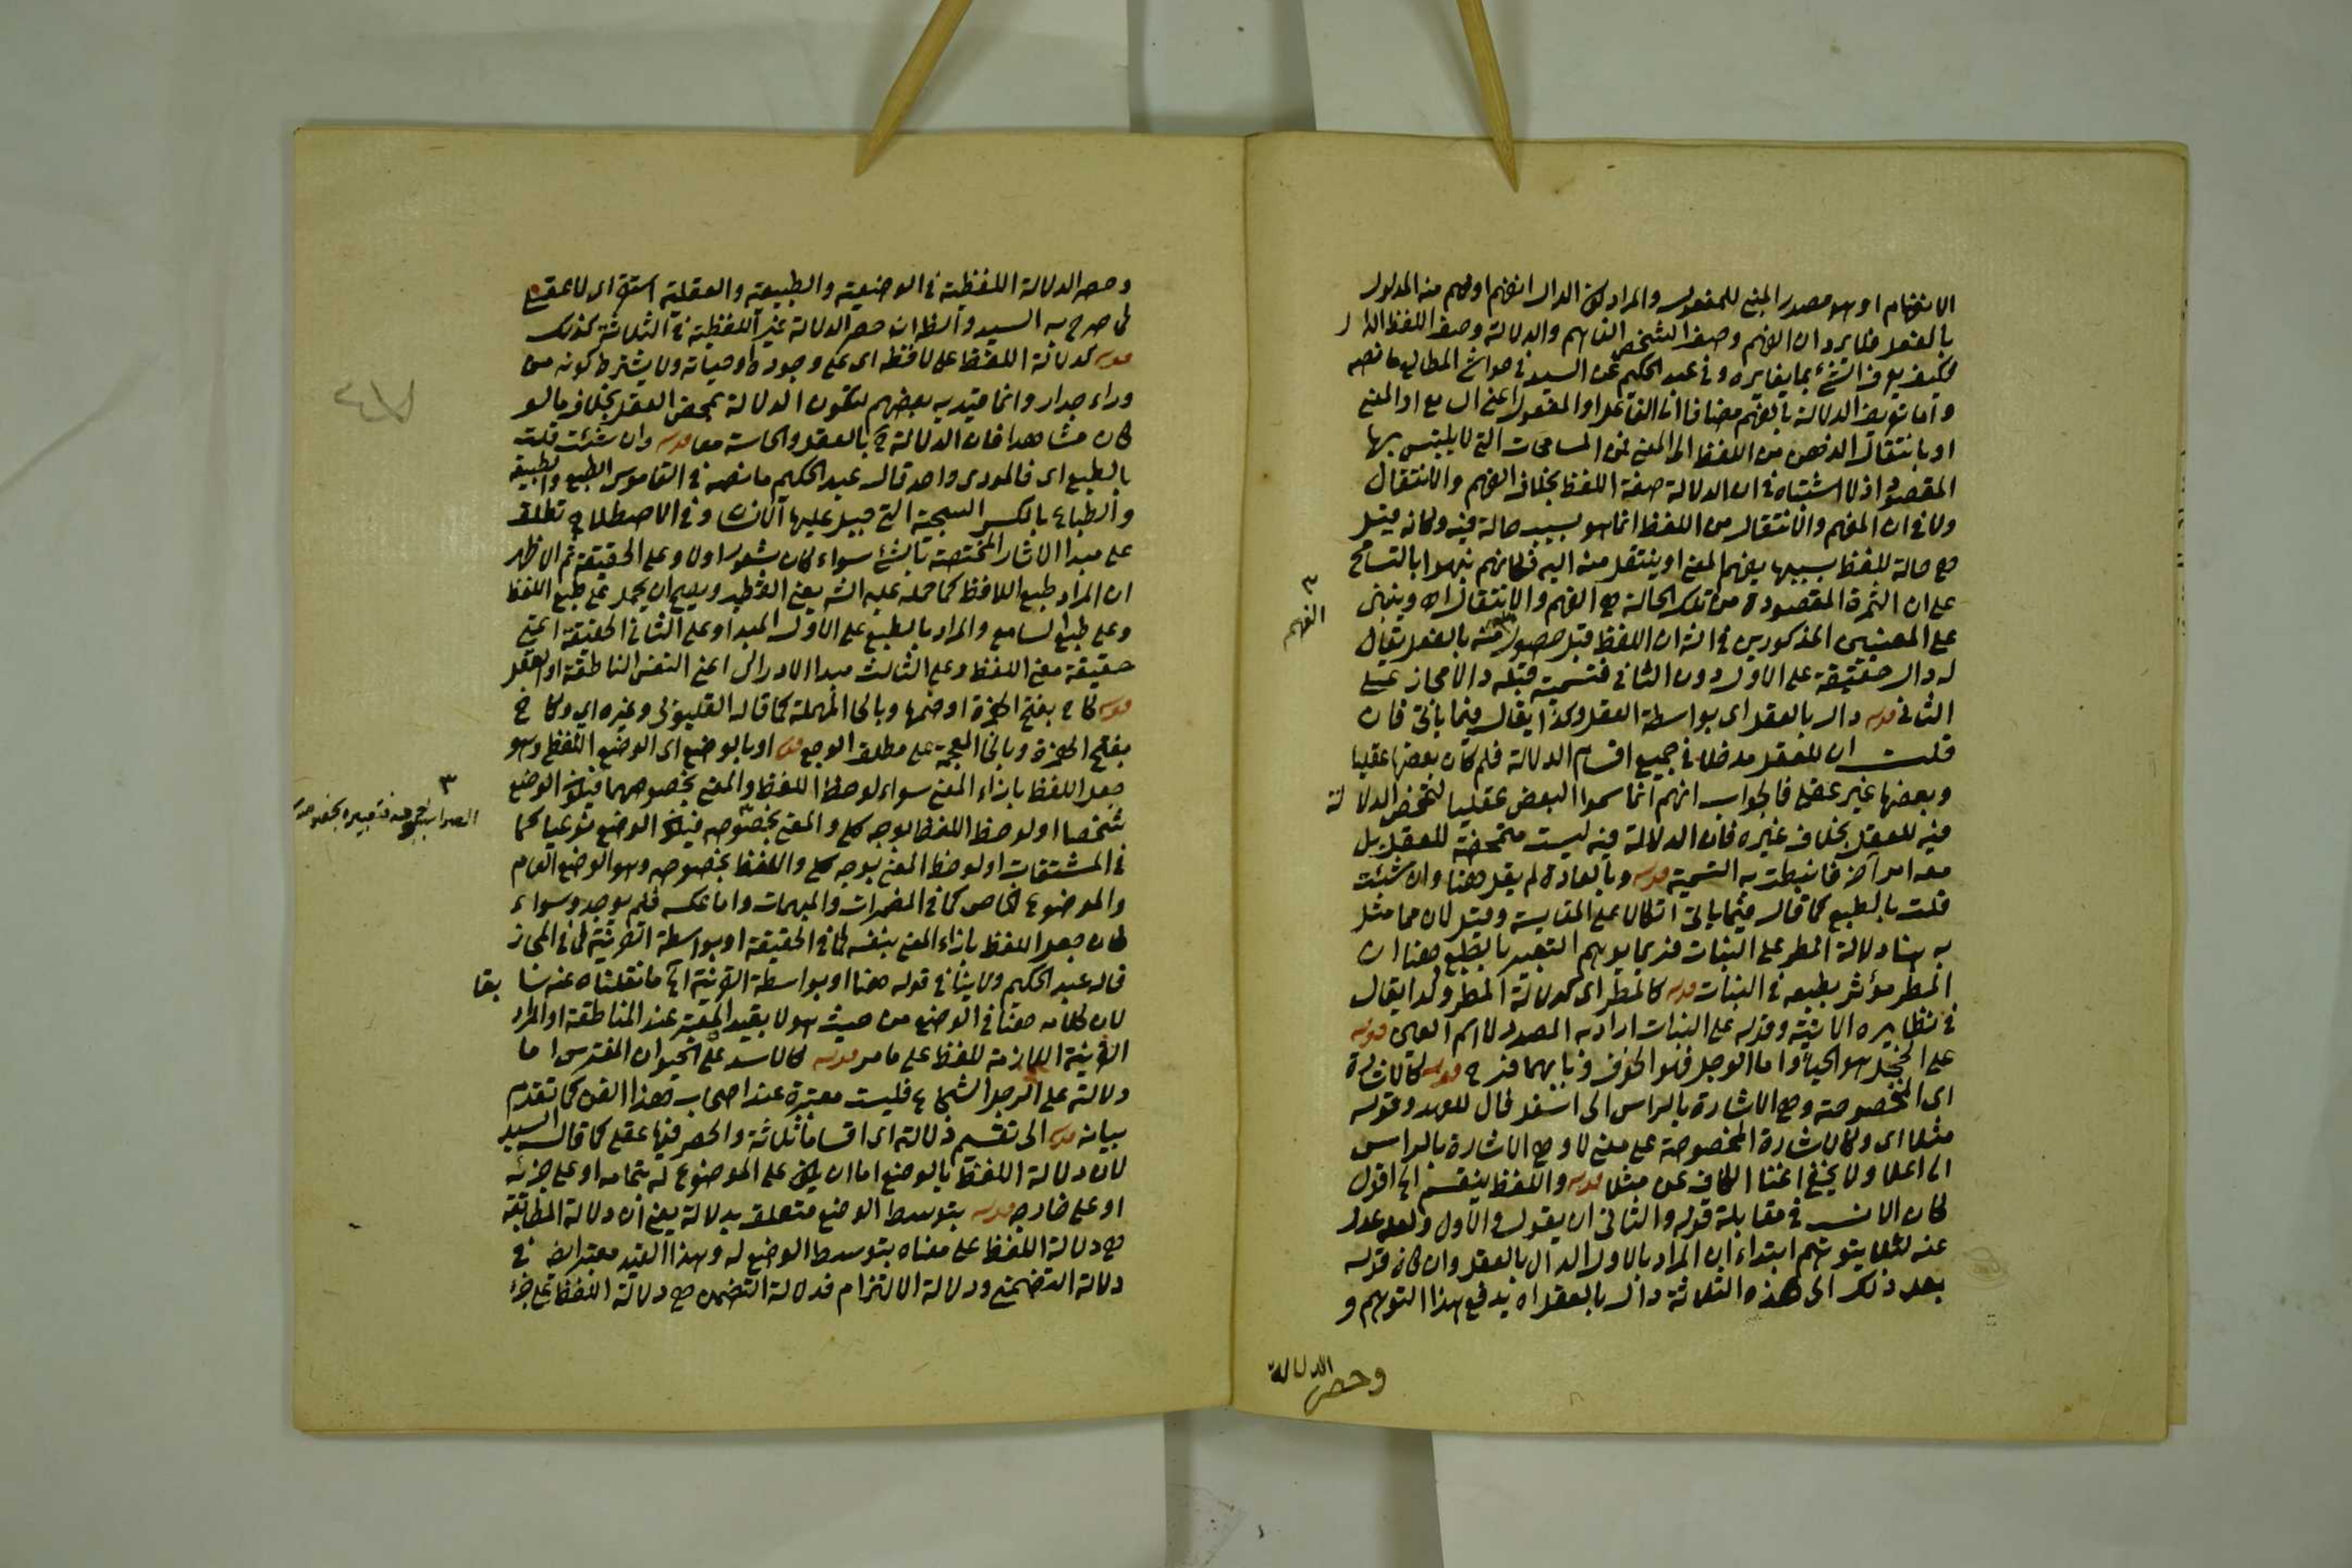 الانفهام او هو مصدر المبنى للمفعول والمراد كون الدال انفهم اوفهم منه المدلول
بالفعل فلا يرد ان الفهم وصف الشخص الفاهم والدلالة وصف اللفظ الدال
فكيف يعرف الشئ بما يغايره وفى عبد الحكيم عن السيد فى حواشى المطالع ما نصه
واما تعريف الدلالة بالفهم مضافا الى الفاعل او المفعول اعنى السامع او المعنى
او بانتقال الذهن من اللفظ الى المعنى فمن المسامحات التى لا يلتبس بها
المقصود اذ لا اشتباه فى ان الدلالة صفة اللفظ بخلاف الفهم والانتقال
ولا فى ان الفهم والانتقال من اللفظ انما هو بسبب حالة فيه وكانه قيل
هى حالة للفظ بسببها يفهم المعنى او ينتقل منه اليه فكانهم نبهوا بالتسامح
على ان الثمرة المقصودة من تلك الحالة هى الفهم والانتقال اه وينبنى
على المعنيين المذكورين فى الشه ان اللفظ قبل حصول منه بالفعل يقال
٣ الفهم
له دال حقيقة على الاول دون الثانى فتسميته قبله دالا مجاز على
الثانى قوله دال بالعقل اى بواسطة العقل وكذا يقال فيما ياتى فان
قلت ان للعقل مدخلا فى جميع اقسام الدلالة فلم كان بعضها عقليا
وبعضها غير عقلى فالجواب انهم انما سموا البعض عقليا لتمحض الدلالة
فيه للعقل بخلاف غيره فان الدلالة فيه ليست متمحضة للعقل بل
معه امر آخر فانيطت به التسمية قوله وبالعادة لم يقل هنا وان شئت
قلت بالطبع كما قال فيما ياتى اتكالا على المقايسة وقيل لان مما مثل
به هنا دلالة المطر على النبات فربما يوهم التعبير بالطبع هنا ان
المطر مؤثر بطبعه فى النبات قوله كالمطر اى كدلالة المطر وكذا يقال
فى نظايره الاتية وقوله على النبات اراد به المصدر لا اسم العين قوله
على الخجل هو الحياء واما الوجل فهو الخوف وبابهما فرح قوله كالاشارة
اى المخصوصة وهى الاشارة بالراس الى اسفل فال للعهد وقوله
مثلا اى وكالاشارة المخصوصة على معنى لا وهى الاشارة بالراس
الى اعلا ولا يخفى اغنا الكاف عن مثلا قوله واللفظ ينقسم الخ اقول
كان الانسب فى مقابلة قوله والثانى ان يقول والاول ولعله عدل
عنه لئلا يتوهم ابتداء ان المراد بالاول الدال بالعقل وان كان قوله
بعد ذلك الى هذه الثلاثة دال بالعقل اه يدفع هذا التوهم و
وحصر الدلالة
وحصر الدلالة اللفظية فى الوضعية والطبيعية والعقلية استقرائى لا عقلى
كما صرح به السيد والظ ان حصر الدلالة غير اللفظية فى الثلاثة كذلك
قوله كدلالة اللفظ على لافظه اى على وجوده او حياته ولا يشترط كونه من
وراء جدار وانما قيد به بعضهم لتكون الدلالة بمحض العقل بخلاف ما لو
كان مشاهدا فان الدلالة ح بالعقل والحاسة معا قوله وان شئت قلت
بالطبع اى فالمودى واحد قال عبد الحكيم ما نصه فى القاموس الطبع والطبيعة
والطباع بالكسر السجية التى جبل عليها الانسان وفى الاصطلاح تطلق
على مبدا الاثار المختصة بالشئ سواء كان بشعور اولا وعلى الحقيقة ثم الاظهر
ان المراد طبع اللافظ كما حمله عليه الشه يعنى القطب ويصح ان يحمل على طبع اللفظ
وعلى طبع السامع والمراد بالطبع على الاول المبدا وعلى الثانى الحقيقة اعنى
حقيقة معنى اللفظ وعلى الثالث مبدا الادراك اعنى النفس الناطقة او العقل
قوله كاح بفتح الهمزة او ضمها وبالحا المهملة كما قاله القليوبى وغيره اى وكاخ
بفتح الهمزة وبالخا المعجمة على مطلق الوجع قوله او بالوضع اى الوضع اللفظى وهو
جعل اللفظ بازاء المعنى سواء لوحظ اللفظ والمعنى بخصوصهما فيكون الوضع
شخصا او لوحظ اللفظ بوجه كلى والمعنى بخصوصه فيكون الوضع نوعيا كما
فى المشتقات او لوحظ المعنى بوجه كلى واللفظ بخصوصه وهو الوضع العام
والموضوع الخاص كما فى المضمرات والمبهمات واما عكسه فلم يوجد وسواء
كان جعل اللفظ بازاء المعنى بنفسه كما فى الحقيقة او بواسطة القرينة كما فى المجاز
قاله عبد الحكيم ولا ينافى قوله هنا او بواسطة القرينة الخ ما نقلناه عنه سابقا
لان كلامه هنا فى الوضع من حيث هو لا بقيد المعتبر عند المناطقة او المراد
القرينة اللازمة للفظ على ما مر قوله كالاسد على الحيوان المفترس اما
دلالته على الرجل الشجاع فليست معتبرة عند اصحاب هذا الفن كما تقدم
بيانه قوله الى تقسيم دلالته اى اقساما ثلاثة والحصر فيها عقلى كما قاله السيد
لان دلالة اللفظ بالوضع اما ان يكون على الموضوع له بتمامه او على جزئه
او على خارجه قوله بتوسط الوضع متعلق بدلالة يعنى ان دلالة المطابقة
هى دلالة اللفظ على معناه بتوسط الوضع له وهذا القيد معتبر ايض فى
دلالة التضمنى ودلالة الالتزام فدلالة التضمن هى دلالة اللفظ على جزء